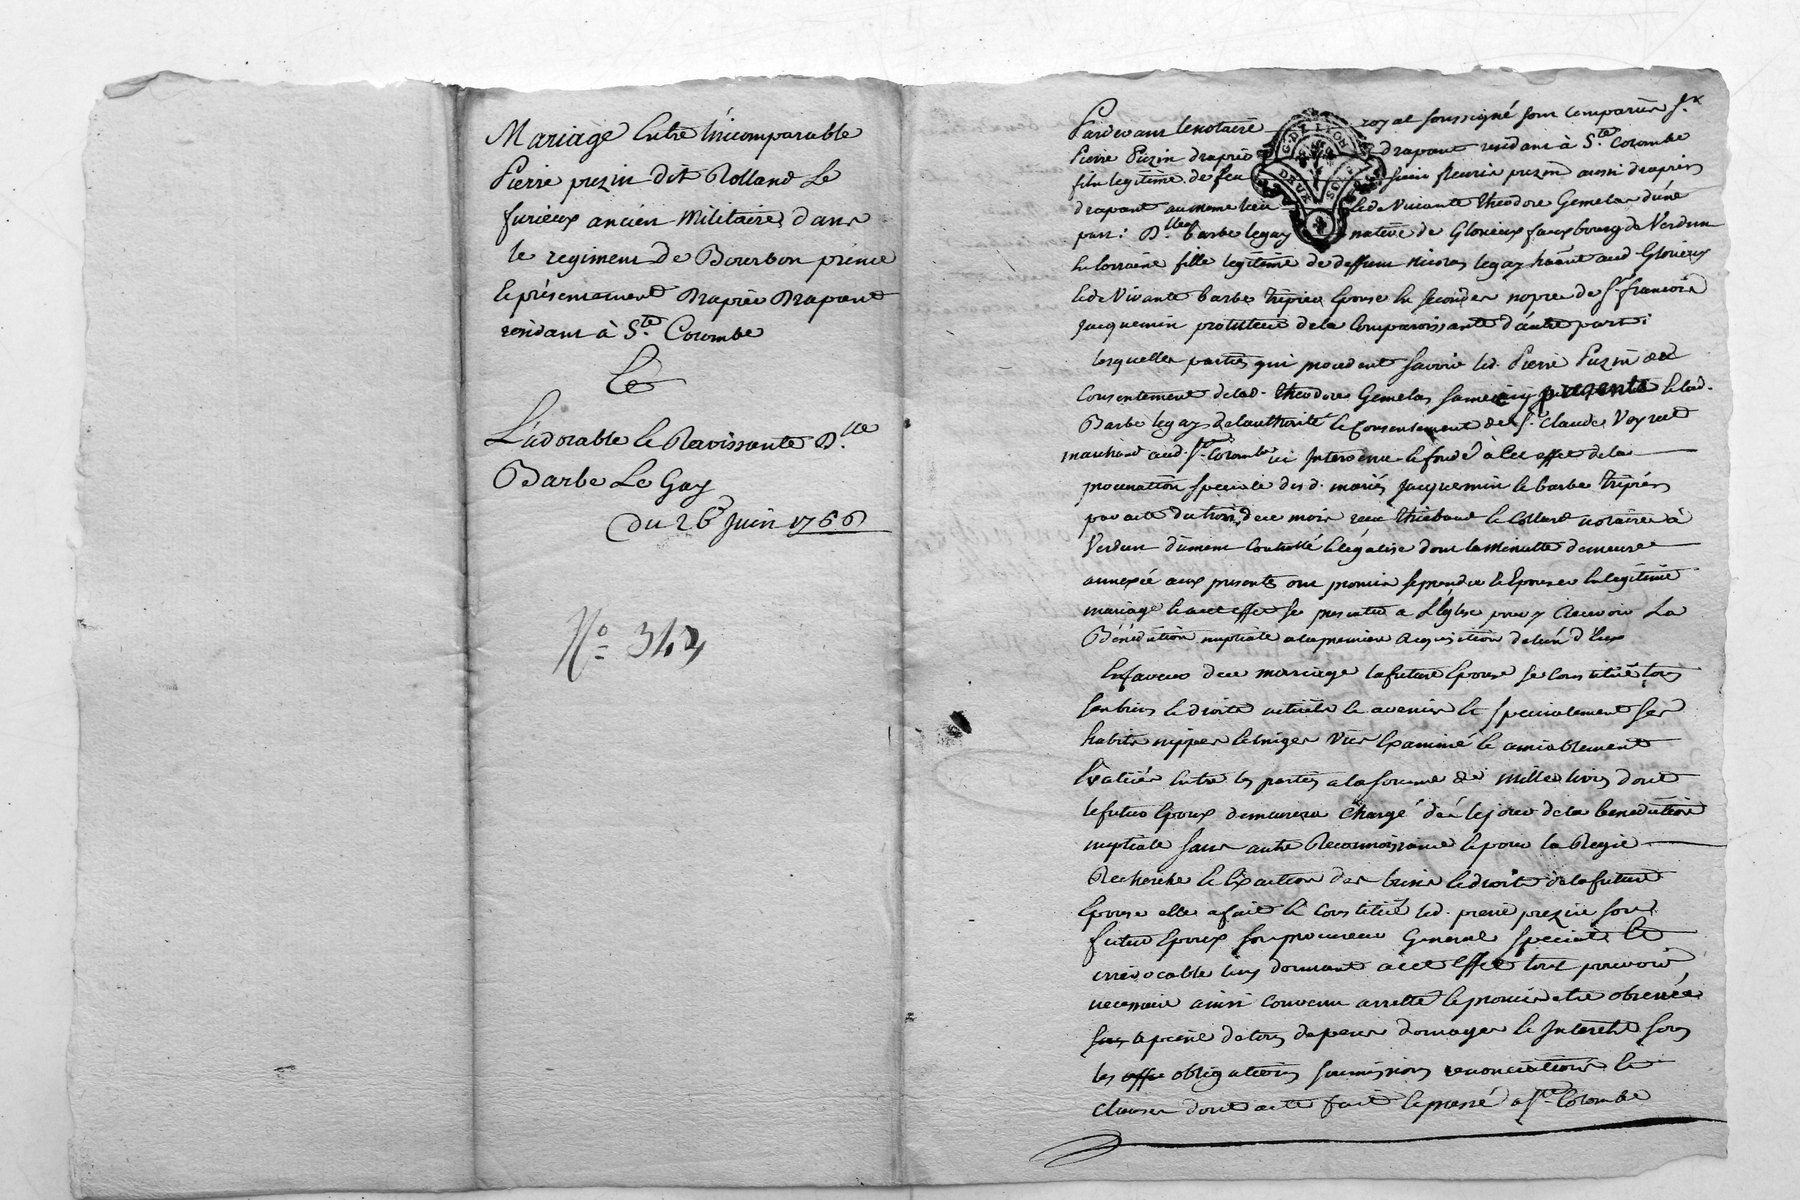 Mariage Entre L'incomparable
Pierre puzin dit Rolland Le
furieux ancien Militaire dans
le regiment de Bourbon prince
et présentement Drapier Drapant
residant à Ste. Colombe
Et
L'adorable et Ravissante Dlle
Barbe Le Gay
du 26 Juin 1766
No 342
Pardevant le notaire royal soussigné sont comparus sr
Pierre Puzin drapier drapant residant à Ste. Colombe
fils legitime de feu sieur fleurie puzin aussi drapier
drapant au meme lieu et de Vivante theodore Gemelas d'une
part; Dlle barbe legay native de Glorieux fauxbourg de Verdun
En lorraine fille legitime de deffunt nicolas legay aud Glorieux
et de Vivante barbe tripier Epouse En secondes nopces de sr. francois
jacquemin protuteur de la Comparoissante d'autre part;
lesquelles parties qui procedent savoir led. Pierre Puzin du
Consentement de lad. theodore Gemelas sa mere icy presente et lad.
Barbe legay de l'authorité et Consentement de sr. Claude Voyret
marchand aud. Ste Colombe ici Intervenu et fondé à Cet effet de la
procuration speciale des d. mariés jacquemin et barbe tripier
par acte du trois de ce mois reçu thiebaud et Collard notaires à
Verdun dûment Controllé et légalisé dont la Minutte demeure
annexée aux presentes ont promis se prendre et Epouser En legitime
mariage et a cet effet se presenter a L'Eglise pour y recevoir La
Bénédiction nuptiale a la premiere Requisition de l'un d'Eux
En faveur de ce mariage la future Epouse se Constitue tous
ses biens et droits actuels et avenir et specialement ses
habits nippes et linges Vus Examiné et amiablement
Evalués Entre les parties a la somme de mille livres dont
le futur Epoux demeurera Chargé dès le jour de la benediction
nuptiale sans autre Reconnoissance et pour la Regie
Recherche et Exaction des biens et droits de la future
Epouse elle a fait et Constitué led. pierre puzin son
futur Epoux son procureur General special et
irrévocable luy donnant a cet Effet tout pouvoir
necessaire ainsi convenu arretté et promis etre observé
sous la peine de tous depens domages et Interets sous
les obligations soumissions renonciations et
clauses dont acte fait et passé a Ste Colombe